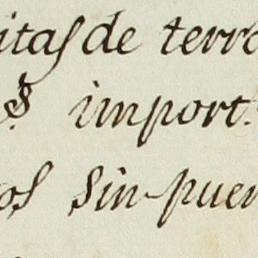 itas de terro
s import.
os Sin-puer